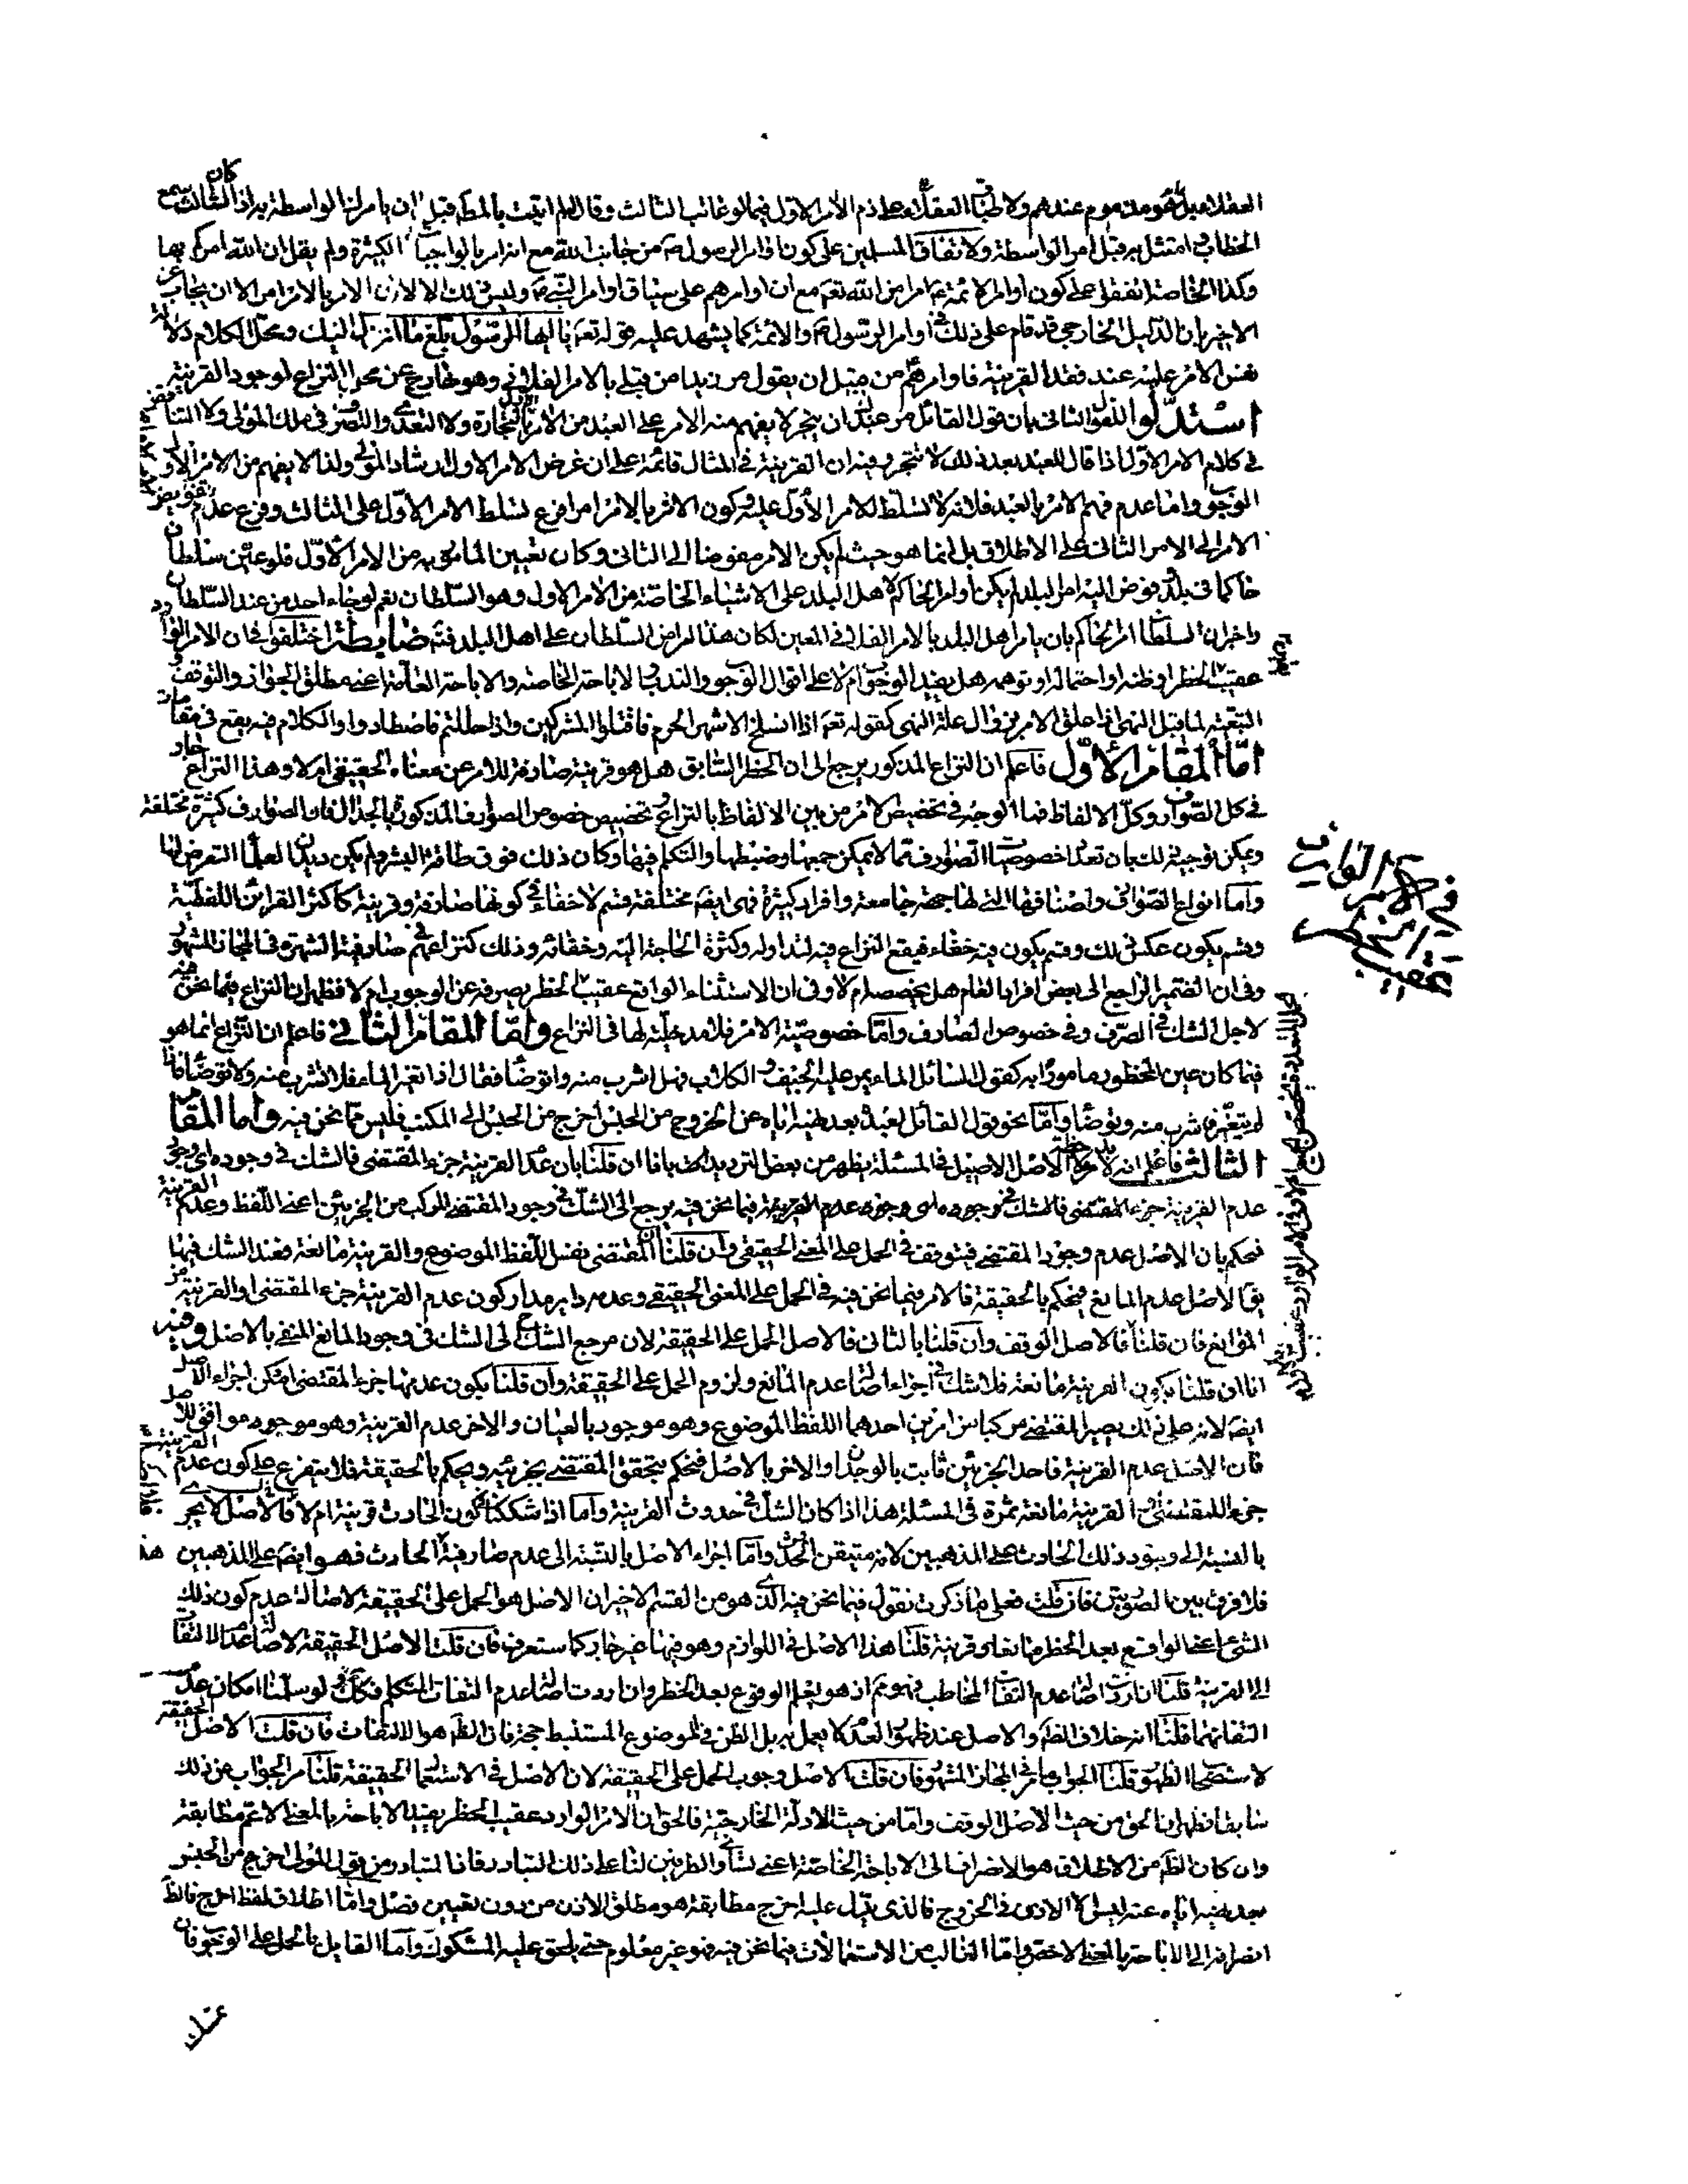 العقلاء بل هو مذموم عندهم ولاطباق العقلاء على ذم الأمر الاول فيما لو عاتب الثالث وقال لم اتيت بالمط قبل ان يامرك الواسطة به اذا كان الثالث سمع
الخطاب وامتثل به قبل امر الواسطة ولاتفاق المسلمين على كون اوامر الرسول ص من جانب الله مع انه امر بالواجبات الكثيرة ولم يقل ان الله امركم بها
وكذا الخاصة اتفقوا على كون اوامر الائمة ع امرا من الله تعم مع ان اوامرهم على سياق اوامر النبي ص وليس ذلك الا لان الامر بالامر امر الا ان يجاب عن
الاخير بان الدليل الخارجي قد قام على ذلك في اوامر الرسول ص والائمة كما يشهد عليه قوله تعم يا ايها الرسول بلغ ما انزل اليك ومحل الكلام دلالة
نفس الامر عليه عند فقد القرينة فاوامرهم من قبيل ان يقول مر زيدا من قبلي بالامر الفلاني وهو خارج عن محل النزاع لوجود القرينة
استدلوا للقول الثاني بان قول القائل مر عبدك ان يتجر لا يفهم منه الامر على العبد من الامر الاول بالتجارة ولا التعدي والتصرف في ملك المولى ولا التناقض
في كلام الامر الاول اذا قال للعبد بعد ذلك لا تتجر وفيه ان القرينة في المثال قائمة على ان غرض الامر الاول ارشاد المولى ولذا لا يفهم من الامر الاول
الوجوب واما عدم فهم الامر بالعبد فلانه لا تسلط للامر الأول عليه وكون الامر بالامر امرا فرع تسلط الامر الأول على الثالث وفرع عدم تفويض
الامر الى الامر الثاني على الاطلاق بل انما هو حيث لم يكن الامر مفوضا الى الثاني وكان تعيين المامور به من الامر الأول فلو عين سلطان
حاكما في بلد وفوض اليه امر البلد لم يكن اوامر الحاكم لاهل البلد على الاشياء الخاصة من الامر الاول وهو السلطان نعم لو جاء احد من عند السلطان
واخبر ان السلطان امر الحاكم بان يامر اهل البلد بالامر الفلاني المعين لكان هذا امرا من السلطان على اهل البلد فتم ضابطة اختلفوا في ان الامر الوارد
عقيب الحظر او ظنه او احتماله او توهمه هل يفيد الوجوب ام لا على اقوال الوجوب والندب والاباحة الخاصة والاباحة العامة اعني مطلق الجواز والتوقف و
التبعية لما قبل النهي اذا علق الامر بزوال علة النهي كقوله تعم اذا انسلخ الاشهر الحرم فاقتلوا المشركين واذا حللتم فاصطادوا والكلام فيه يقع في مقامات
امّا المقام الأوّل فاعلم ان النزاع المذكور يرجع الى ان الحظر السابق هل هو قرينة صارفة للامر عن معناه الحقيقي ام لا وهذا النزاع جار
في كل الصوارف وكل الالفاظ فما الوجه في تخصيص الامر من بين الالفاظ بالنزاع وتخصيص خصوص الصوارف المذكورة بالجدال فان الصوارف كثيرة مختلفة
ويمكن توجيه ذلك بان تعداد خصوصيات الصوارف مما لا يمكن جمعها وضبطها والتكلم فيها وكان ذلك فوق طاقة البشر ولم يكن ديدن العلماء التعرض لها
واما انواع الصوارف واصنافها التي لها جهة جامعة وافراد كثيرة فهي ايضا مختلفة فقسم لا خفاء في كونها صارفة وقرينة كاكثر القرائن اللفظية
وقسم يكون عكس ذلك وقسم يكون فيه خفاء فيقع النزاع فيه لتداوله وكثرة الحاجة اليه وخفائه وذلك كنزاعهم في صارفية الشهرة في المجاز المشهور
وفي ان الضمير الراجع الى بعض افراد العام هل يخصصه ام لا وفي ان الاستثناء الواقع عقيب الحظر يصرفه عن الوجوب ام لا فظهر ان النزاع فيما نحن فيه
لاجل الشك في الصرف وفي خصوص الصارف واما خصوصية الامر فلا مدخلية لها في النزاع وامّا المقام الثاني فاعلم ان النزاع انما هو
فيما كان عين المحظور مامورا به كقول السائل الماء يمر عليه الجيف والكلاب فهل اشرب منه واتوضأ فقال اذا تغير الماء فلا تشرب منه ولا تتوضأ واذا
لم يتغير فاشرب منه وتوضأ واما نحو قول القائل لعبده بعد نهيه اياه عن الخروج من الحبس اخرج من الحبس الى المكتب فليس مما نحن فيه واما المقام
الثالث فاعلم انه لا بد اولا من الاصل الاصيل في المسئلة يظهر من بعض الترديد اذ قلنا بان عدم القرينة جزء المقتضي فالشك في وجوده اي وجود
عدم القرينة فيما نحن فيه يرجع الى الشك في وجود المقتضي المركب من الجزئين اعني اللفظ وعدم القرينة
نحكم بان الاصل عدم وجود المقتضي فيتوقف في الحمل على المعنى الحقيقي وان قلنا المقتضي نفس اللفظ الموضوع والقرينة مانعة فعند الشك فيها
يق الاصل عدم المانع فيحكم بالحقيقة فالامر فيما نحن فيه في الحمل على المعنى الحقيقي وعدمه داير مدار كون عدم القرينة جزء المقتضي او القرينة من
الموانع فان قلنا فالاصل الوقف وان قلنا بالثاني فالاصل الحمل على الحقيقة لان مرجع الشك ح الى الشك في وجود المانع المنفي بالاصل وفيه
انا ان قلنا بكون القرينة مانعة فلا شك في اجراء اصالة عدم المانع ولزوم الحمل على الحقيقة وان قلنا بكون عدمها جزء المقتضي امكن اجراء الاصل
ايضا لانه على ذلك يصير المقتضي مركبا من امرين احدهما اللفظ الموضوع وهو موجود بالعيان والاخر عدم القرينة وهو موجود موافق للاصل
فان الاصل عدم القرينة فاحد الجزئين ثابت بالوجدان والاخر بالاصل فنحكم بتحقق المقتضي بجزئيه ويحكم بالحقيقة فلا يتفرع على كون عدم القرينة
جزء للمقتضي او القرينة مانعة ثمرة في المسئلة هذا اذا كان الشك في حدوث القرينة واما اذا شككنا في كون الحادث قرينة ام لا فالاصل لا يجري
بالنسبة الى وجود ذلك الحادث على المذهبين لانه متيقن الحدوث واما اجراء الاصل بالنسبة الى عدم صارفية الحادث فهو ايضا على المذهبين هذا
فلا فرق بين الصورتين فان قلت فعلى ما ذكرت نقول فيما نحن فيه الذي هو من القسم الاخير ان الاصل هو الحمل على الحقيقة لاصالة عدم كون ذلك
الشيء اعني الوقوع بعد الحظر مانعا وقرينة قلنا هذا الاصل في اللوازم وهو فيها غير جار كما ستعرف فان قلت الاصل الحقيقة لاصالة عدم الالتفات
الى القرينة قلنا ان اردت اصالة عدم التفات المخاطب فهو مم اذ هو يعلم الوقوع بعد الحظر وان اردت اصالة عدم التفات المتكلم فكك ولو سلمنا امكان عدم
التفاتهما قلنا انه خلاف الظ والاصل عند ظهور العدم لا يعمل به بل الظن في الموضوع المستنبط حجة فان الظ هو الالتفات فان قلت الاصل الحقيقة
لاستصحاب الظهور قلنا الجواب ما مر في المجاز المشهور فان قلت الاصل وجوب الحمل على الحقيقة لان الاصل في الاستعمال الحقيقة قلنا مر الجواب عن ذلك
سابقا فظهر ان الحق من حيث الاصل الوقف واما من حيث الادلة الخارجية فالحق ان الامر الوارد عقيب الحظر يفيد الاباحة بالمعنى الاعم مطابقة
وان كان الظ من الاطلاق هو الانصراف الى الاباحة الخاصة اعني تساوي الطرفين لنا على ذلك التبادر فان المتبادر من قول المولى اخرج من الحبس
بعد نهيه اياه عنه ليس الا الاذن في الخروج فالذي يدل عليه اخرج مطابقة هو مطلق الاذن من دون تعيين فصل واما اطلاق لفظ اخرج فالظ
انصرافه الى الاباحة بالمعنى الاخص واما الغالب من الاستعمالات فيما نحن فيه فهو غير معلوم حتى يلحق عليه المشكوك واما القايل بالحمل على الوجوب فان
في الامر الواقع
عقيب الحظر